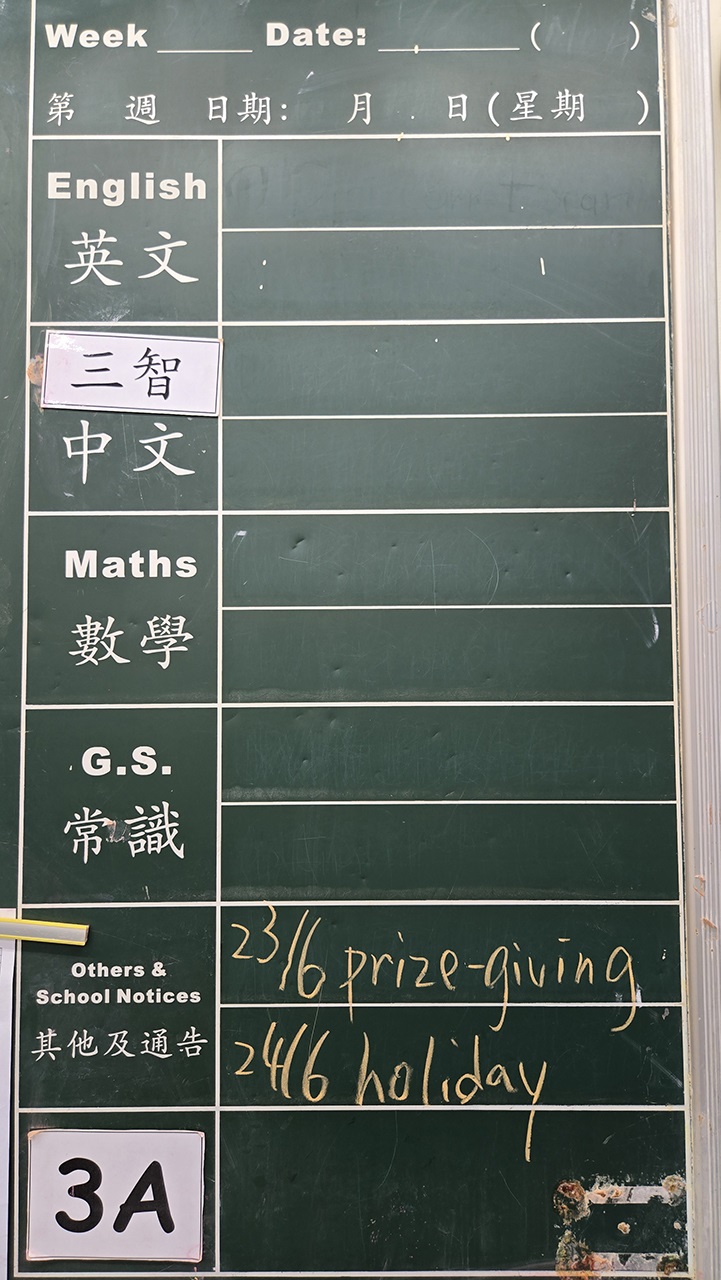 Week ______ Date: __________ (          )
第 週 日期: 月 日(星期 )
English
英文
三智
中文
Maths
數學
G.S.
常識
23/6 prize-giving
Others &
School Notices
其他及通告
24/6 holiday
3A